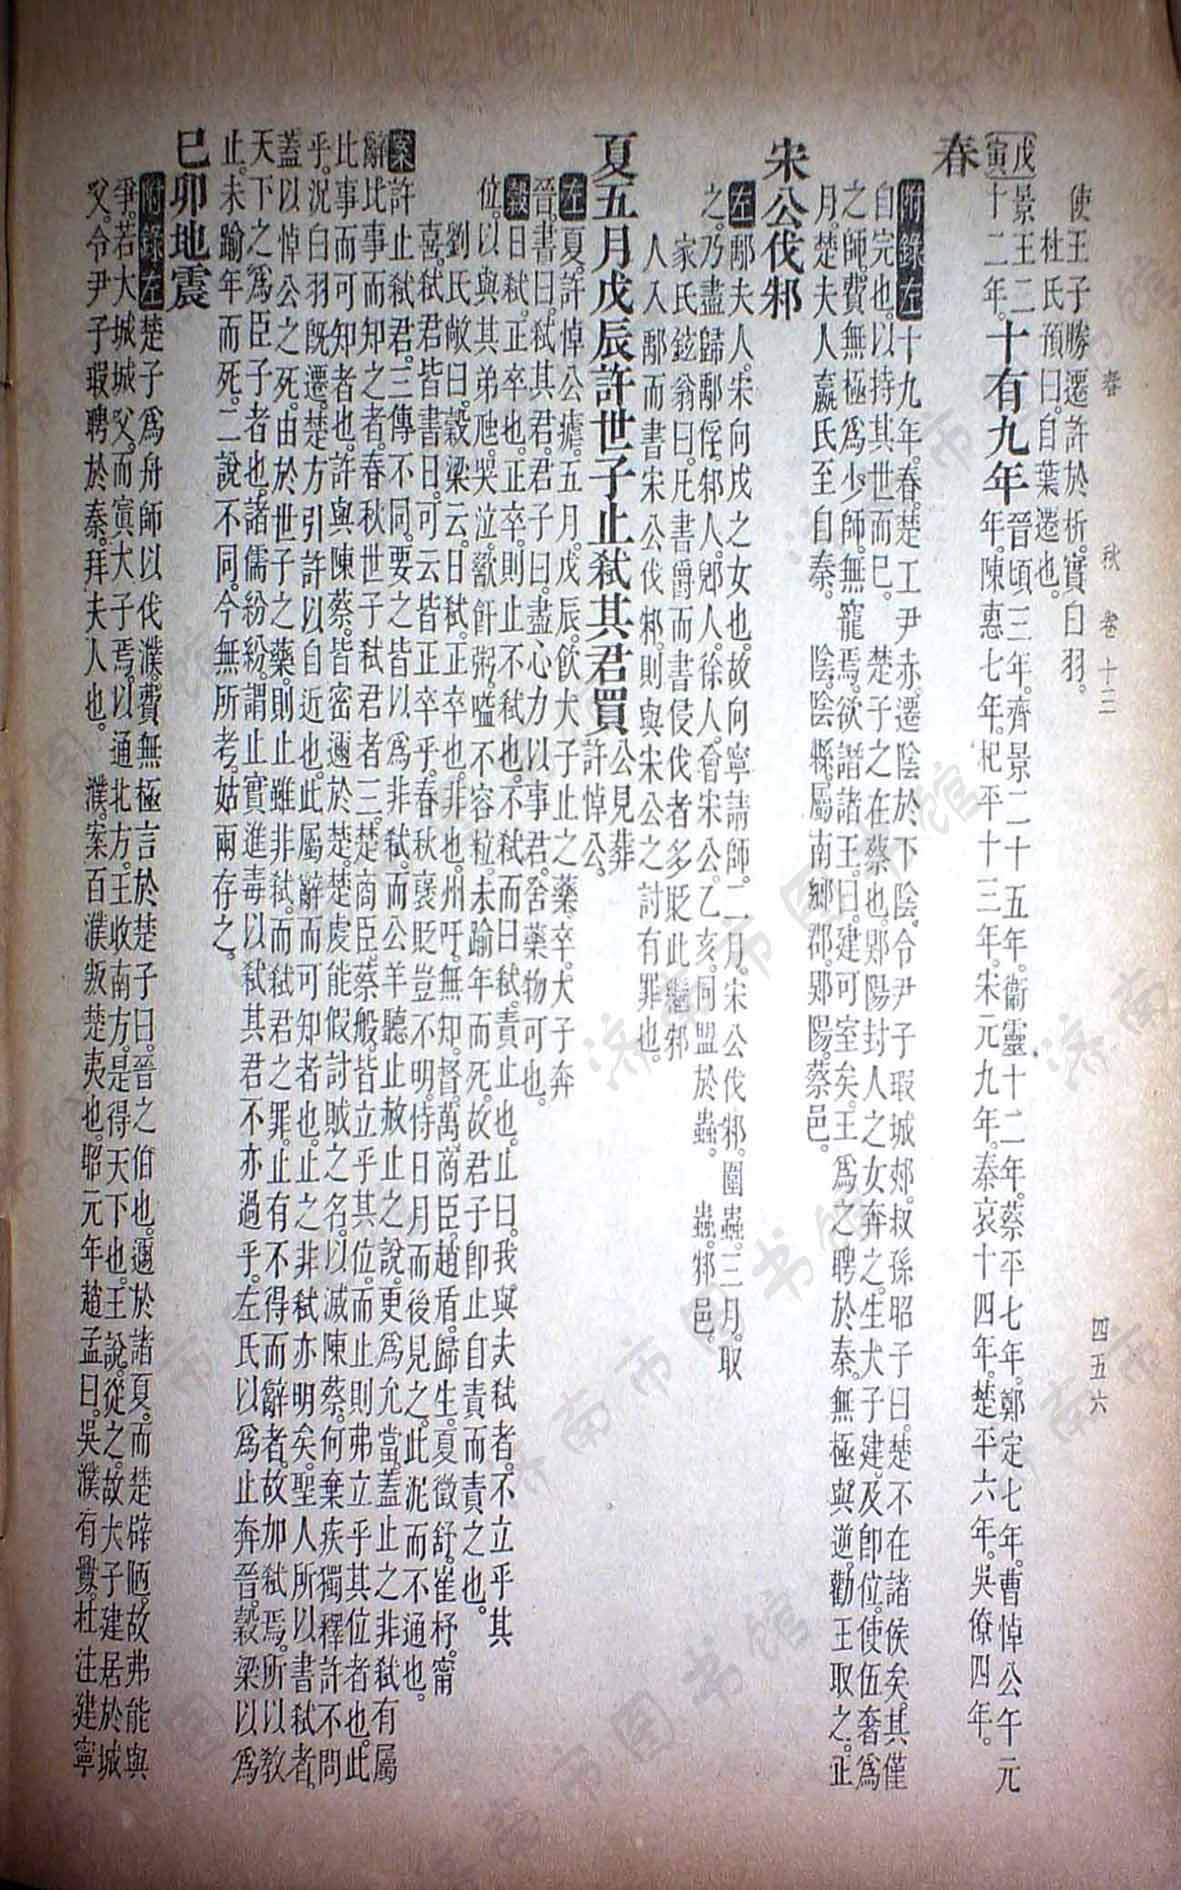 春 秋 卷十三 四五六
使王子勝遷許於析實白羽。
杜氏預曰。自葉遷也。
戊寅 景王二十二年。十有九年 晉頃三年。齊景二十五年。衞靈十二年。蔡平七年。鄭定七年。曹悼公午元年。陳惠七年。杞平十三年。宋元九年。秦哀十四年。楚平六年。吳僚四年。
春
附錄左 十九年。春。楚工尹赤。遷陰於下陰。令尹子瑕城郟。叔孫昭子曰。楚不在諸侯矣。其僅
自完也。以持其世而已。 楚子之在蔡也。郹陽封人之女奔之。生大子建。及即位。使伍奢爲
之師。費無極爲少師。無寵焉。欲譖諸王。曰。建可室矣。王爲之聘於秦。無極與逆。勸王取之。正
月。楚夫人嬴氏至自秦。 陰。陰縣。屬南鄉郡。郹陽。蔡邑。
宋公伐邾
左 鄅夫人。宋向戌之女也。故向寧請師。二月。宋公伐邾。圍蟲。三月。取
之。乃盡歸鄅俘。邾人。郳人。徐人。會宋公。乙亥。同盟於蟲。 蟲。邾邑。
家氏鉉翁曰。凡書爵而書侵伐者。多貶。此繼邾
人入鄅而書宋公伐邾。則與宋公之討有罪也。
夏五月戊辰許世子止弒其君買 公見葬許悼公。
左 夏。許悼公瘧。五月。戊辰。飮大子止之藥。卒。大子奔
晉。書曰。弒其君。君子曰。盡心力以事君。舍藥物可也。
穀 日弒。正卒也。正卒。則止不弒也。不弒而曰弒。責止也。止曰。我與夫弒者。不立乎其
位。以與其弟虺。哭泣。歠飦粥。嗌不容粒。未踰年而死。故君子卽止自責而責之也。
劉氏敞曰。穀梁云。日弒。正卒也。非也。州吁。無知。督。萬。商臣。趙盾。歸生。夏徵舒。崔杼。甯
喜。弒君皆書日。可云皆正卒乎。春秋褒貶豈不明。恃日月而後見之。此泥而不通也。
案 許止弒君。三傳不同。要之皆以爲非弒。而公羊聽止赦止之說。更爲允當。蓋止之非弒有屬
辭比事而知之者。春秋世子弒君者三。楚商臣。蔡般。皆立乎其位。而止則弗立乎其位者也。此
此事而可知者也。許與陳蔡。皆密邇於楚。楚虔能假討賊之名。以滅陳蔡。何棄疾獨釋許不問
乎。況白羽既遷。楚方引許以自近也。此屬辭而可知者也。止之非弒亦明矣。聖人所以書弒者。
蓋以悼公之死。由於世子之藥。則止雖非弒。而弒君之罪。止有不得而辭者。故加弒焉。所以敎
天下之爲臣子者也。諸儒紛紛。謂止實進毒以弒其君。不亦過乎。左氏以爲止奔晉。穀梁以爲
止。未踰年而死。二說不同。今無所考。姑兩存之。
己卯地震
附錄左 楚子爲舟師以伐濮。費無極言於楚子曰。晉之伯也。邇於諸夏。而楚辟陋。故弗能與
爭。若大城城父。而寘大子焉。以通北方。王收南方。是得天下也。王說。從之。故大子建居於城
父。令尹子瑕聘於秦。拜夫人也。 濮。案百濮叛楚夷也。昭元年趙孟曰。吳濮有釁。杜注建寧
济南市图书馆